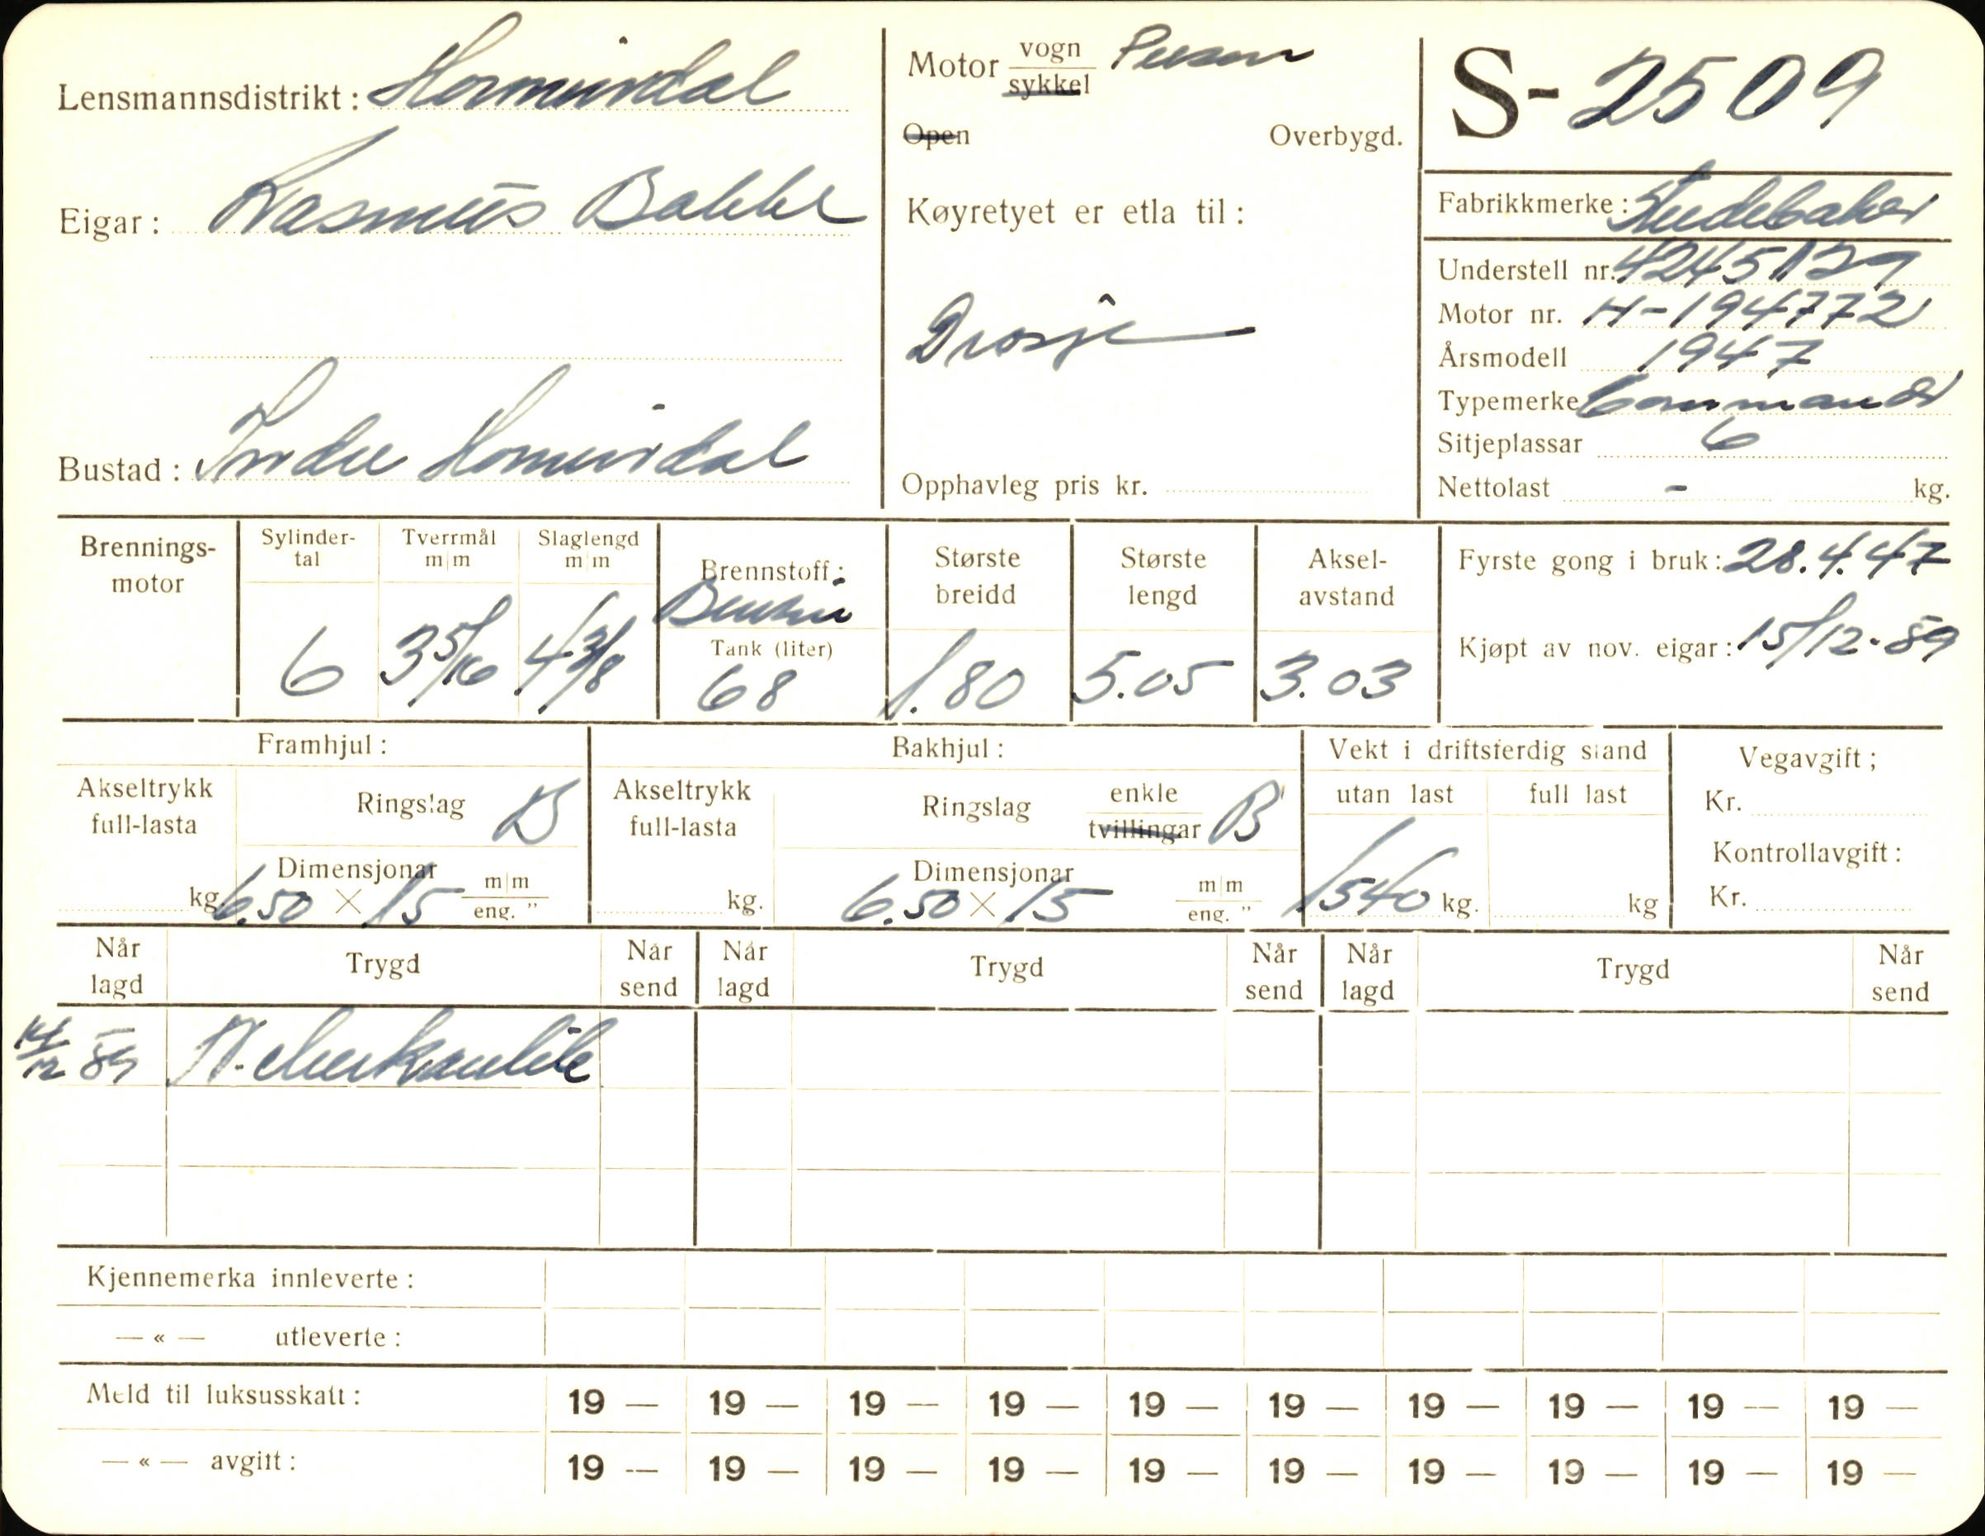 Lensmannsdistrikt: Hornindal
Eigar: Rasmus Bakke
Bustad: Indre Hornindal
Motor vogn Person
sykkel
Open Overbygd.
Køyretyet er etla til:
Drosje
Opphavleg pris kr.
S-2509
Fabrikkmerke: Studebaker
Understell nr. 4245129
Motor nr. H-194772
Årsmodell 1947
Typemerke Commander
Sitjeplassar 6
Nettolast - kg.
Brennings-
motor
Sylinder-
tal
6
Tverrmål
m|m
3 5/16
Slaglengd
m|m
4 3/8
Brennstoff:
Bensin
Tank (liter)
68
Største
breidd
1.80
Største
lengd
5.05
Aksel-
avstand
3.03
Fyrste gong i bruk: 28.4.47
Kjøpt av nov. eigar: 15/12-59
Framhjul:
Akseltrykk
full-lasta
kg.
Ringslag B
Dimensjonar
6.50 × 15 m|m
eng. "
Bakhjul:
Akseltrykk
full-lasta
kg.
Ringslag enkle
tvillingar B
Dimensjonar
6.50 × 15 m|m
eng. "
Vekt i driftsferdig stand
utan last full last
1540 kg. kg
Vegavgift;
Kr.
Kontrollavgift:
Kr.
Når
lagd Trygd Når
send Når
lagd Trygd Når
send Når
lagd Trygd Når
send
14/12 59 N. Merkantile
Kjennemerka innleverte:
— « — utleverte:
Meld til luksusskatt: 19 — 19 — 19 — 19 — 19 — 19 — 19 — 19 — 19 — 19 —
— « — avgift: 19 — 19 — 19 — 19 — 19 — 19 — 19 — 19 — 19 — 19 —